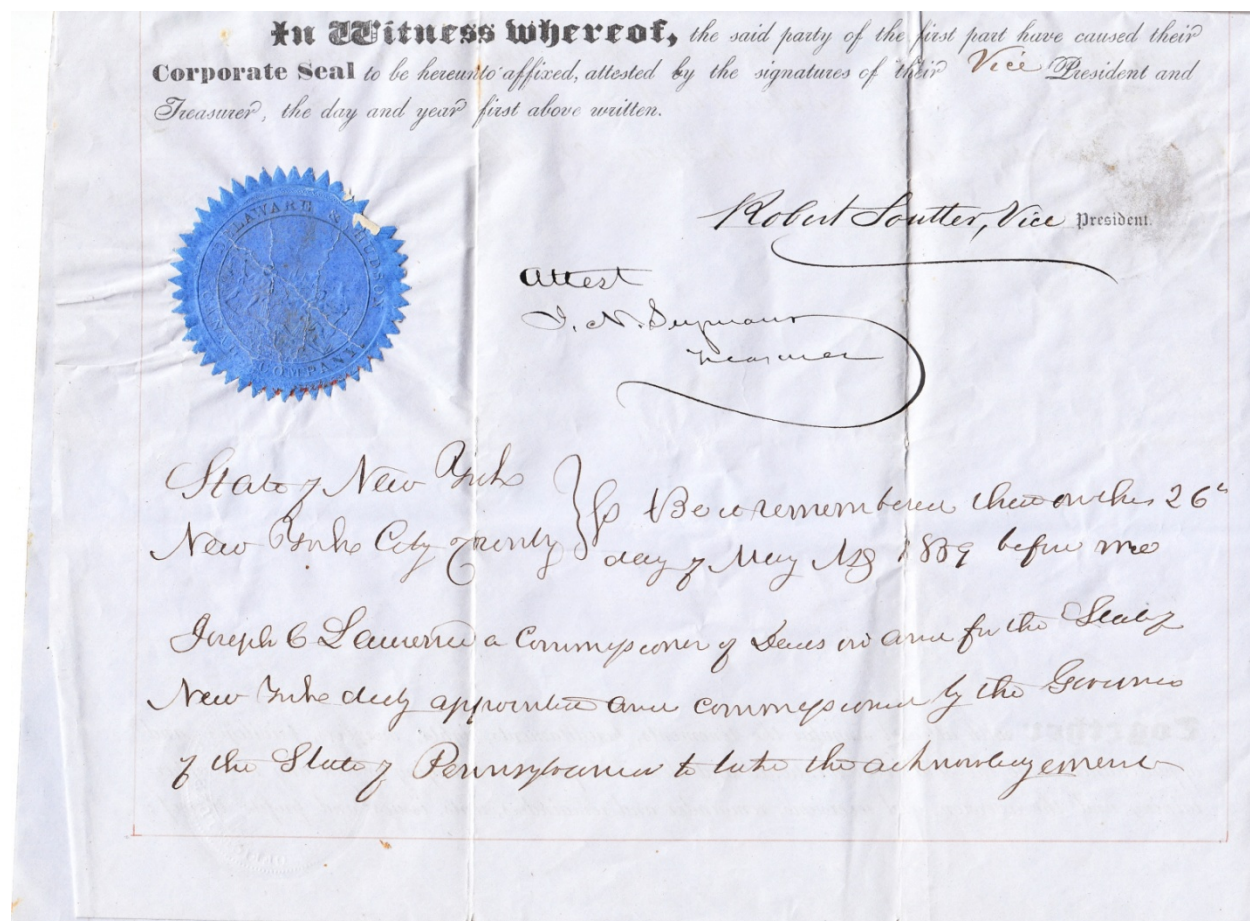 In Witness whereof, the said party of the first part have caused their
Corporate Seal to be hereunto affixed, attested by the signatures of their Vice President and
Treasurer, the day and year first above written.
DELAWARE & HUDSON
COMPANY
Robert Soutter, Vice President.
Attest
I. N. Seymour
Treasurer
State of New York
New York City & County } ss
Be it remembered that on this 26th
day of May AD 1859 before me
Joseph C Lawrence a Commissioner of Deeds in and for the State of
New York duly appointed and commissioned by the Governor
of the State of Pennsylvania to take the acknowledgement
Together